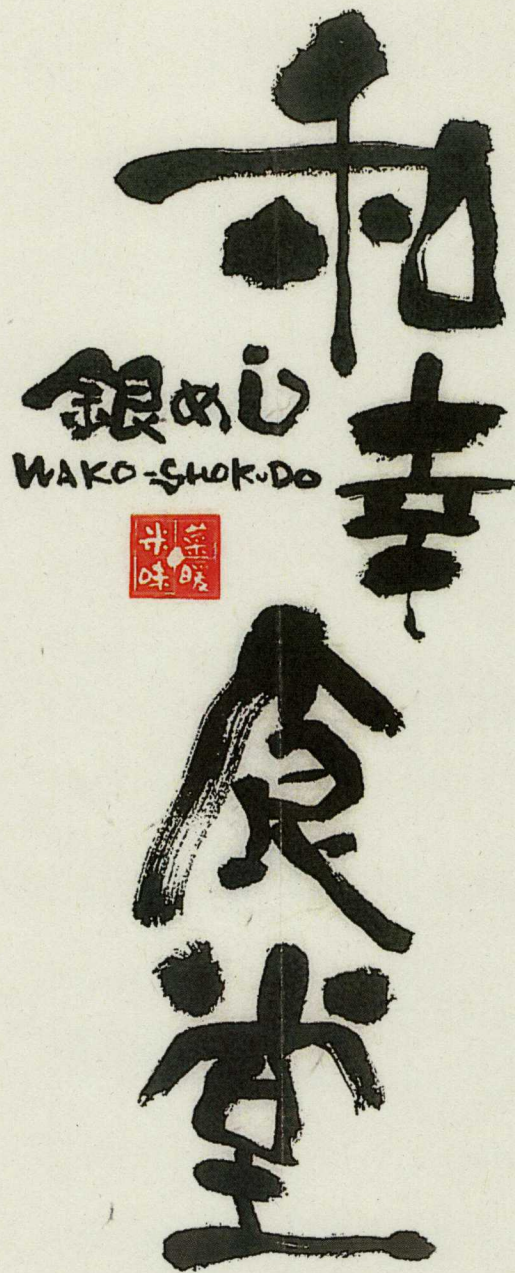 和幸食堂
銀めし
WAKO-SHOKUDO
菜暖
米味